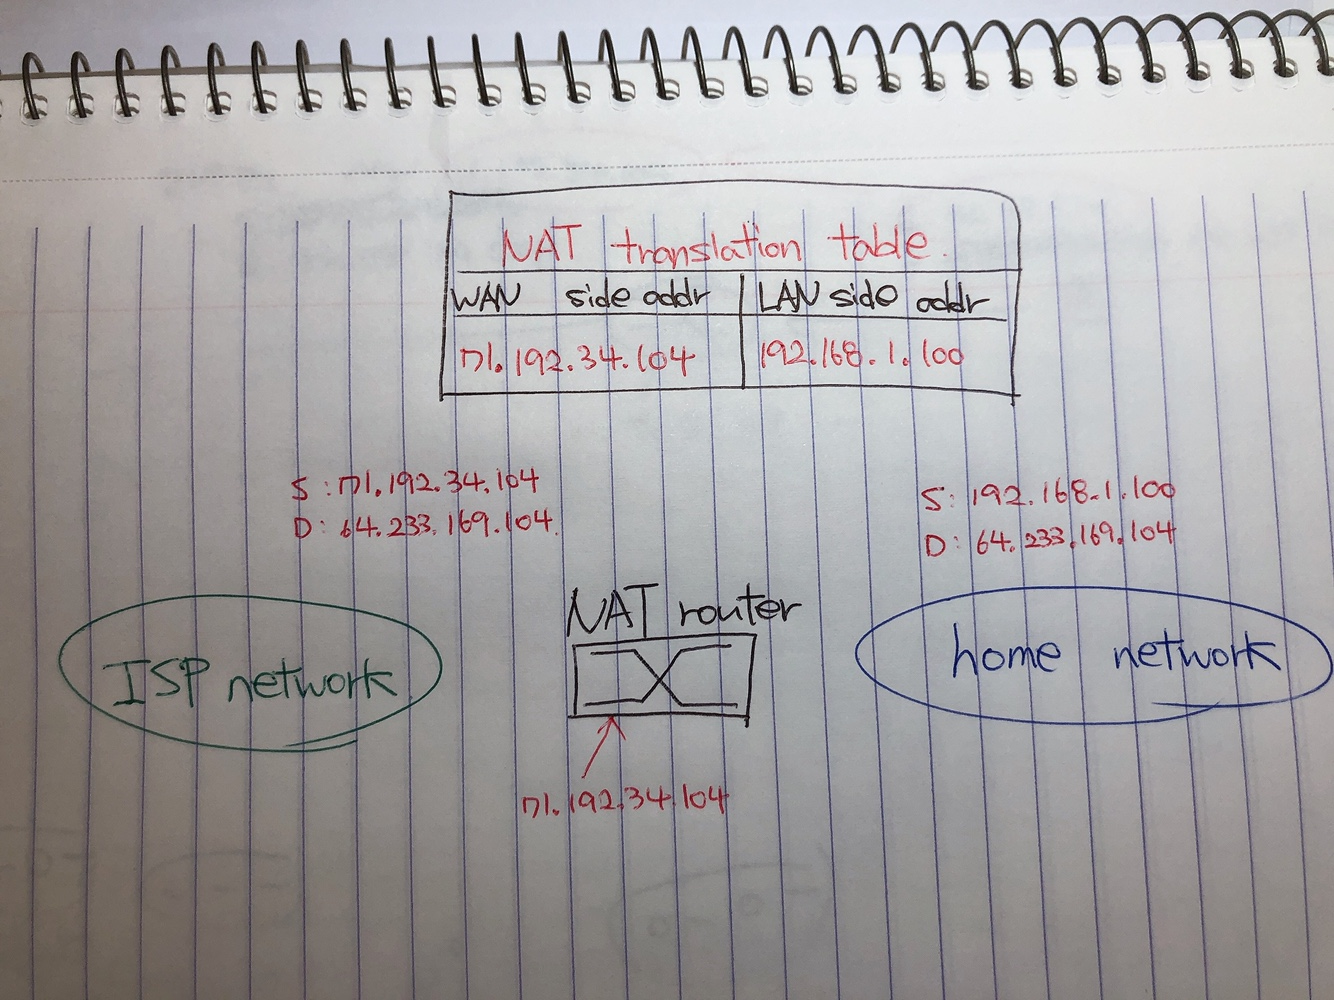 NAT translation table.
WAN side addr LAN side addr
71.192.34.104 192.168.1.100
S: 71.192.34.104
D: 64.233.169.104.
S: 192.168.1.100
D: 64.233.169.104
NAT router
ISP network
home network
71.192.34.104